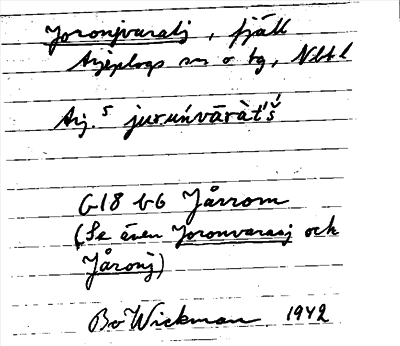 Joronjvaratj, fjäll
Arjeplogs sn o tg, Nbtl
Arj.⁵ juruńvāràt́š́
G18 b6 Jårrom
(Se även Joronvarasj och
Jåronj)
Bo Wickman 1942